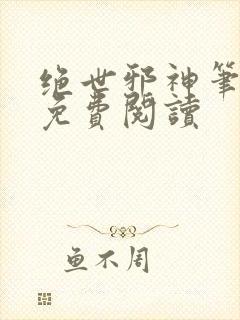 绝世邪神笔
免費閱讀
鱼不周